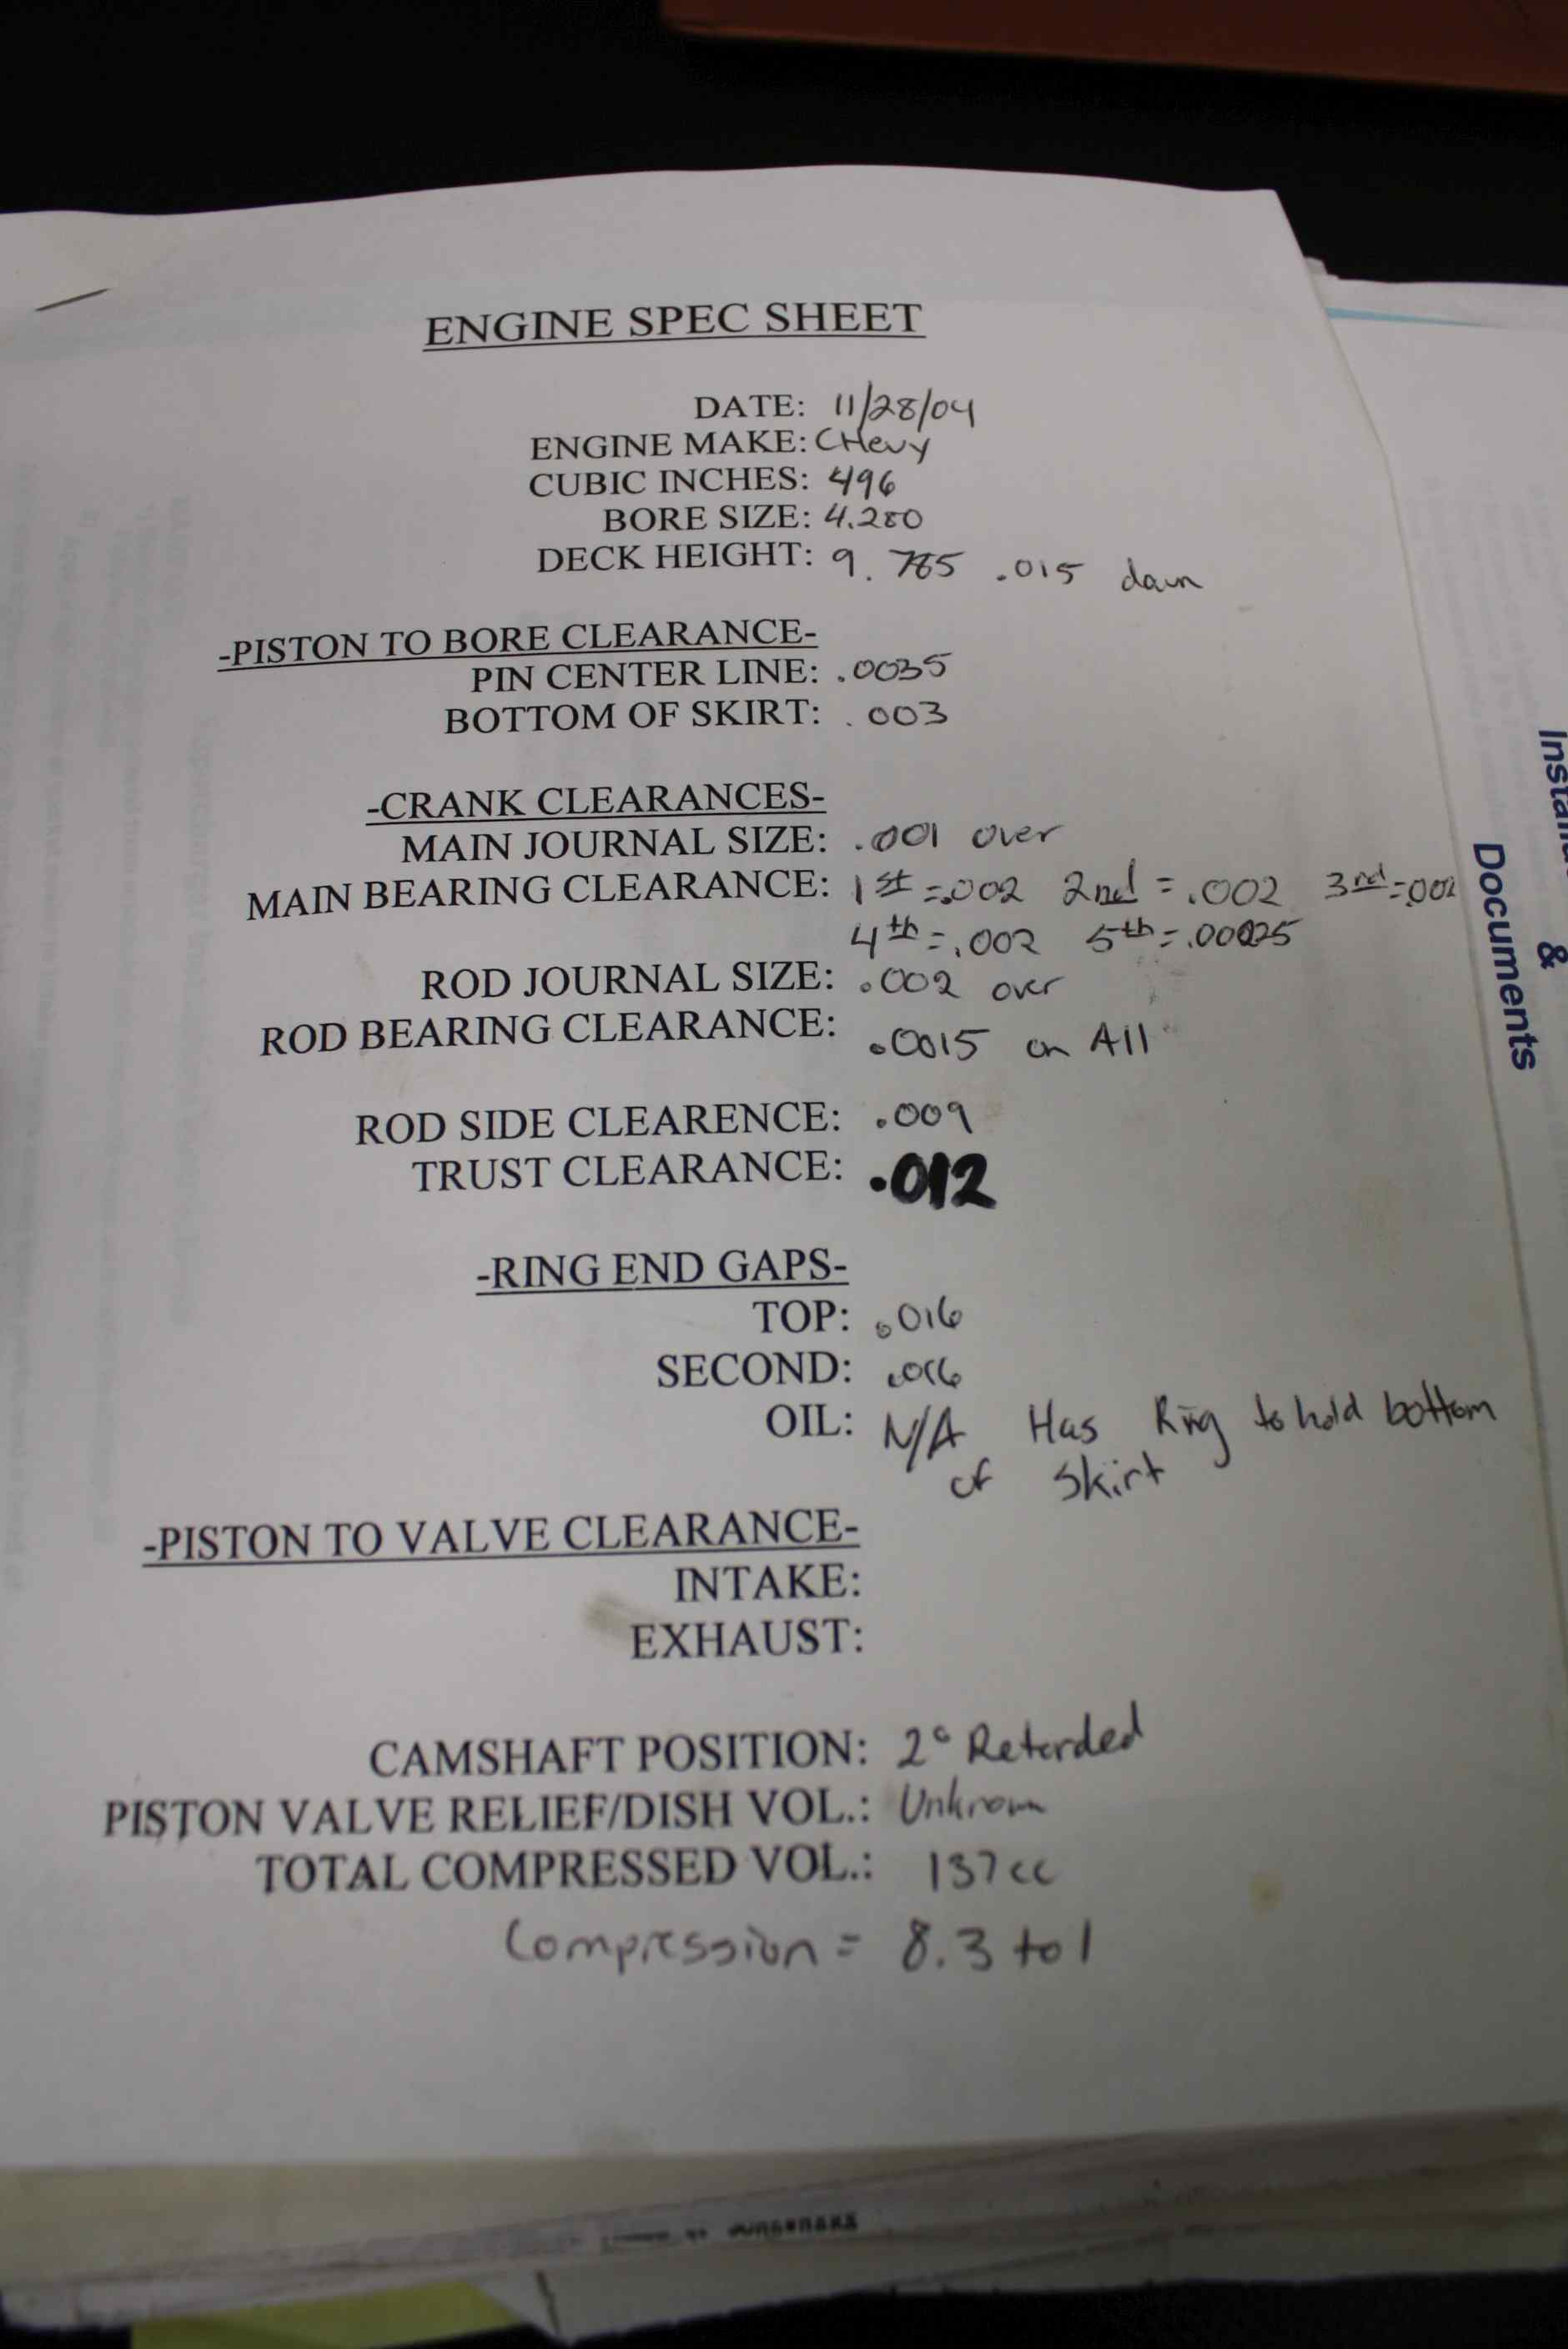 ENGINE SPEC SHEET
DATE: 11/28/04
ENGINE MAKE: CHevy
CUBIC INCHES: 496
BORE SIZE: 4.280
DECK HEIGHT: 9.785 .015 down
-PISTON TO BORE CLEARANCE-
PIN CENTER LINE: .0035
BOTTOM OF SKIRT: .003
-CRANK CLEARANCES-
MAIN JOURNAL SIZE: .001 over
MAIN BEARING CLEARANCE: 1st =.002 2nd = .002 3rd =.002
4th =.002 5th =.00025
ROD JOURNAL SIZE: .002 over
ROD BEARING CLEARANCE: .0015 on All
ROD SIDE CLEARENCE: .009
TRUST CLEARANCE: .012
-RING END GAPS-
TOP: .016
SECOND: .016
OIL: N/A Has Ring to hold bottom
of skirt
-PISTON TO VALVE CLEARANCE-
INTAKE:
EXHAUST:
CAMSHAFT POSITION: 2° Retarded
PISTON VALVE RELIEF/DISH VOL.: Unknown
TOTAL COMPRESSED VOL.: 137cc
Compression = 8.3 to 1
&
Documents